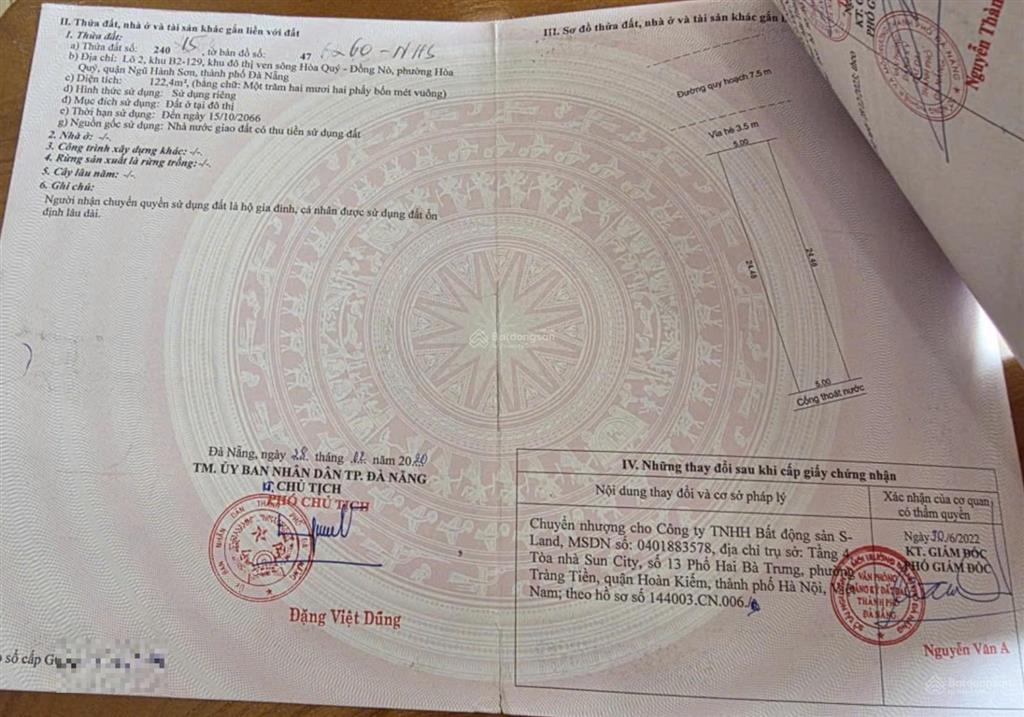 II. Thửa đất, nhà ở và tài sản khác gắn liền với đất
1. Thửa đất:
a) Thửa đất số: 240 15, tờ bản đồ số: 47 F260-NHS
b) Địa chỉ: Lô 2, khu B2-129, khu đô thị ven sông Hòa Quý - Đồng Nò, phường Hòa
Quý, quận Ngũ Hành Sơn, thành phố Đà Nẵng
c) Diện tích: 122,4m², (bằng chữ: Một trăm hai mươi hai phẩy bốn mét vuông)
d) Hình thức sử dụng: Sử dụng riêng
đ) Mục đích sử dụng: Đất ở tại đô thị
e) Thời hạn sử dụng: Đến ngày 15/10/2066
g) Nguồn gốc sử dụng: Nhà nước giao đất có thu tiền sử dụng đất
2. Nhà ở: -/-.
3. Công trình xây dựng khác: -/-.
4. Rừng sản xuất là rừng trồng: -/-.
5. Cây lâu năm: -/-
6. Ghi chú:
Người nhận chuyển quyền sử dụng đất là hộ gia đình, cá nhân được sử dụng đất ổn
định lâu dài.
Đà Nẵng, ngày 28 tháng 12 năm 2020
TM. ỦY BAN NHÂN DÂN TP. ĐÀ NẴNG
KT. CHỦ TỊCH
PHÓ CHỦ TỊCH
Đặng Việt Dũng
số cấp G
III. Sơ đồ thửa đất, nhà ở và tài sản khác gắn
Đường quy hoạch 7.5 m
Vỉa hè 3.5 m
5.00
24.48
24.48
5.00
Cống thoát nước
IV. Những thay đổi sau khi cấp giấy chứng nhận
Nội dung thay đổi và cơ sở pháp lý
Xác nhận của cơ quan
có thẩm quyền
Chuyển nhượng cho Công ty TNHH Bất động sản S-
Land, MSDN số: 0401883578, địa chỉ trụ sở: Tầng 4,
Tòa nhà Sun City, số 13 Phố Hai Bà Trưng, phường
Tràng Tiền, quận Hoàn Kiếm, thành phố Hà Nội, Việt
Nam; theo hồ sơ số 144003.CN.006
Ngày 30/6/2022
KT. GIÁM ĐỐC
PHÓ GIÁM ĐỐC
VĂN PHÒNG
ĐĂNG KÝ ĐẤT ĐAI
THÀNH PHỐ
ĐÀ NẴNG
Nguyễn Văn A
Nguyễn Thàn
Batdongsan
Batdongsan